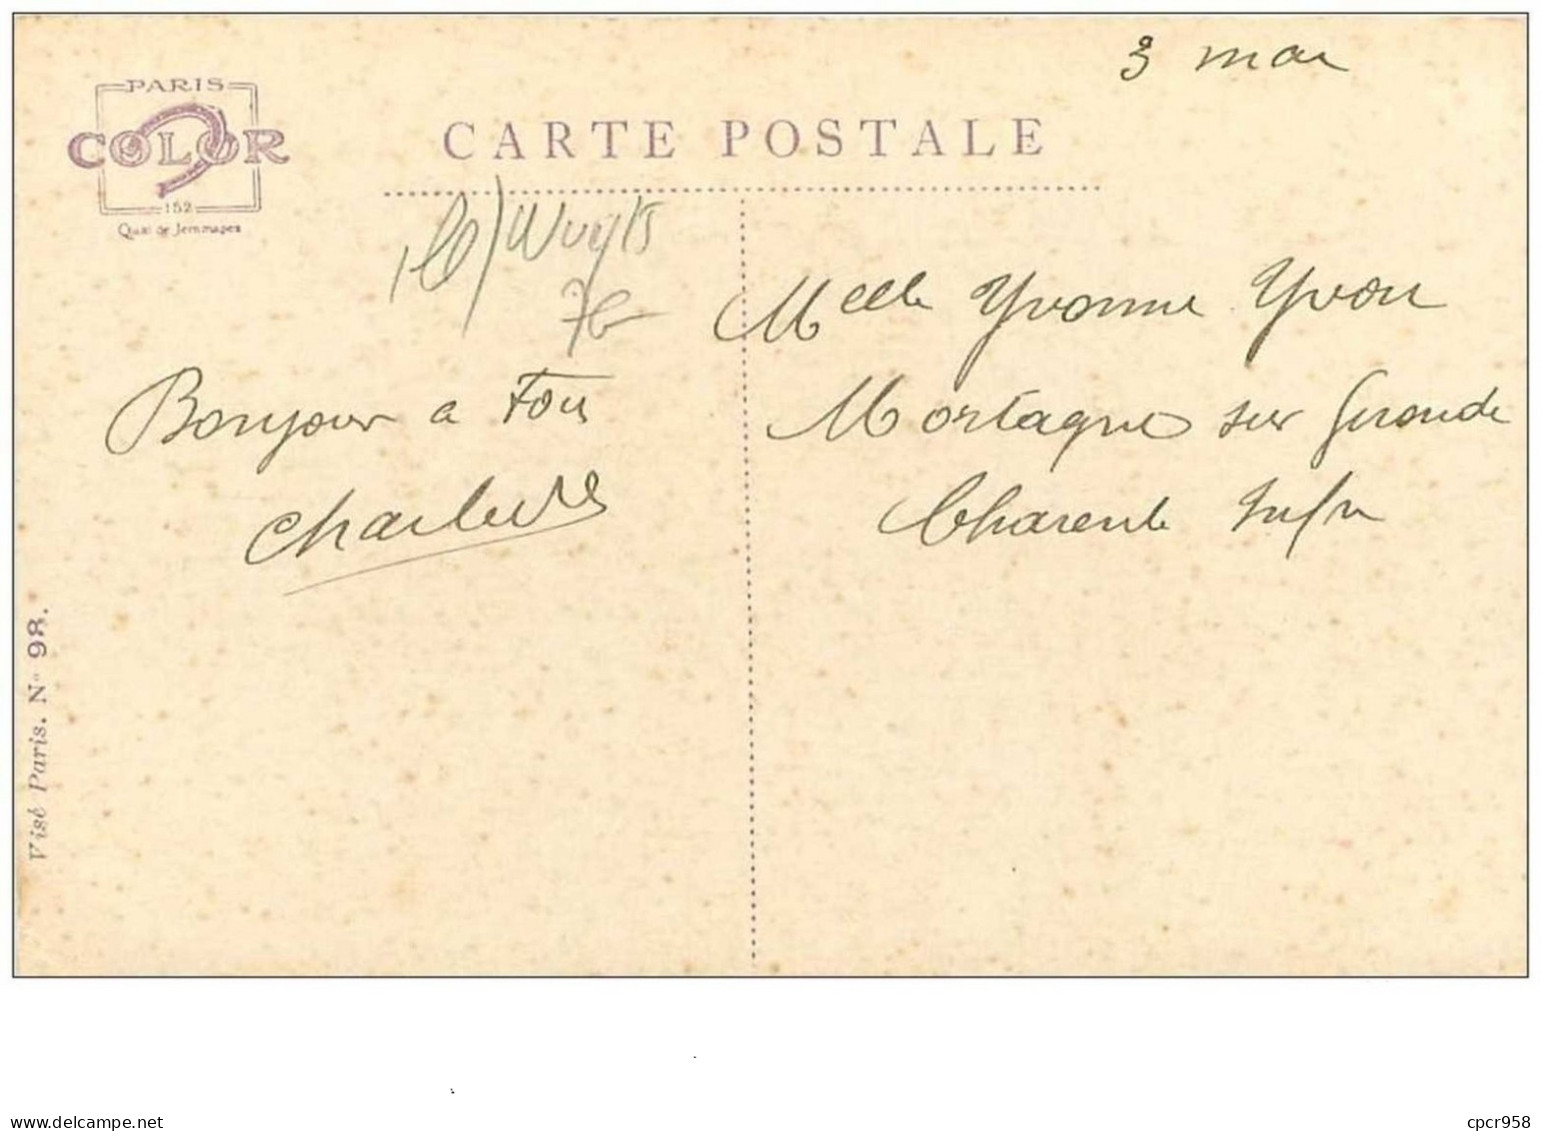 3 mai
PARIS
COLOR
152
Quai de Jemmapes
CARTE POSTALE
Wuyts
Melle Yvonne Yvon
Bonjour a Tous
Mortagne sur Gironde
Charente Infre
Visé Paris. N° 98.
www.delcampe.net
cpcr958